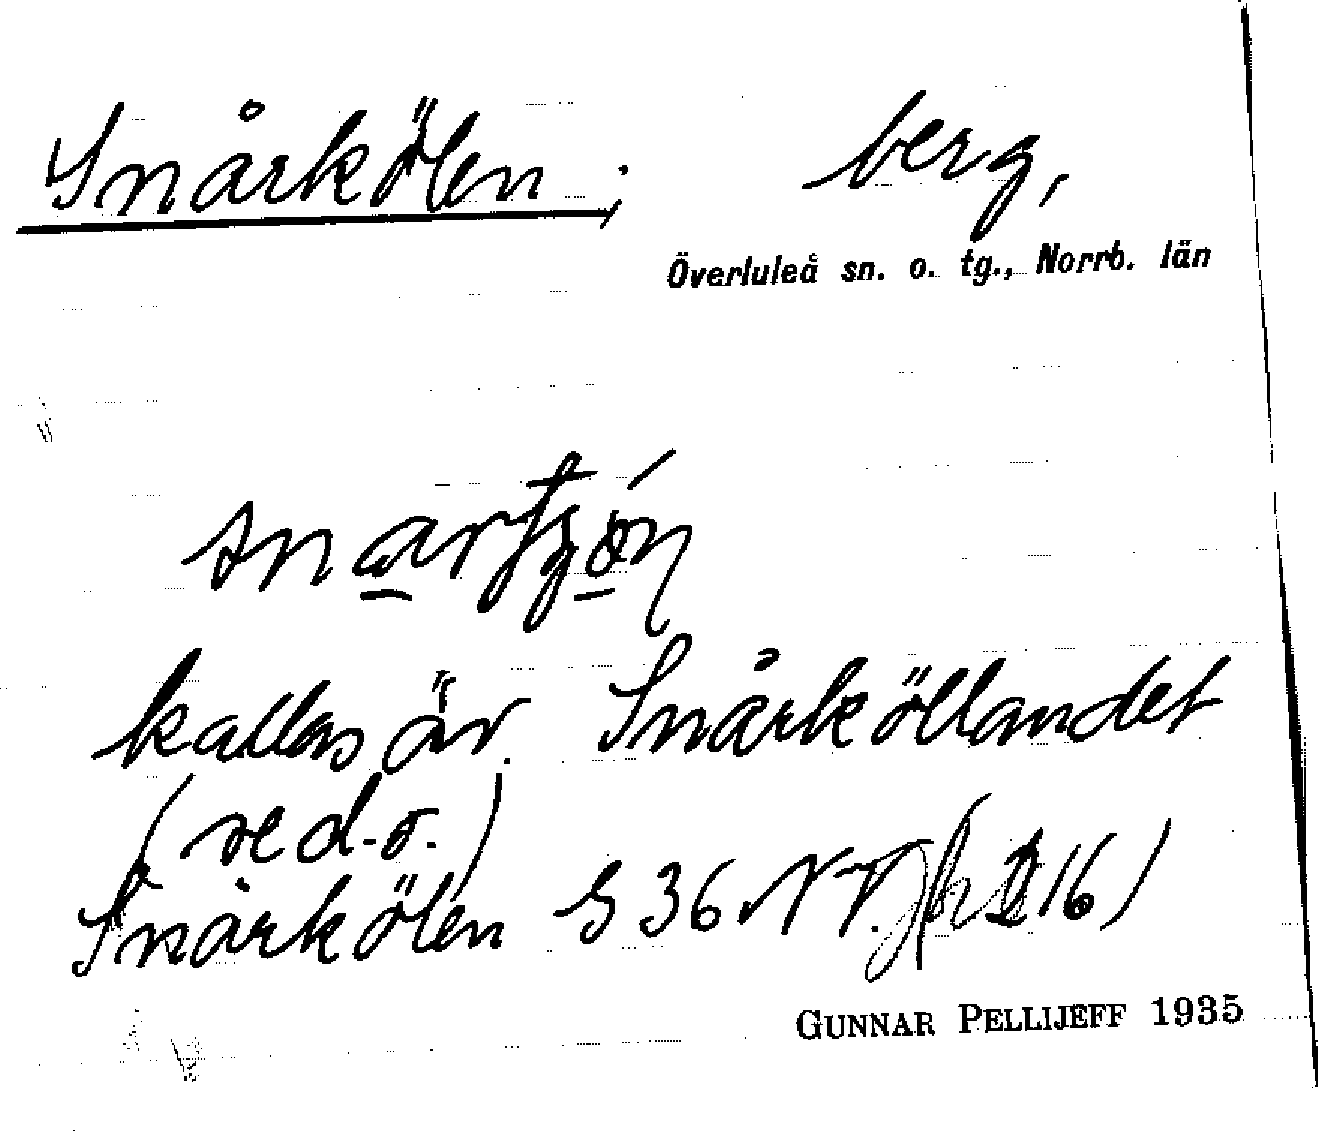 Snårkölen, berg,
Överluleå sn. o. tg., Norrb. län
kallas äv. Snårköllandet
(se d.o.)
Snårkölen S 36 NV.
16)
GUNNAR PELLIJEFF 1935